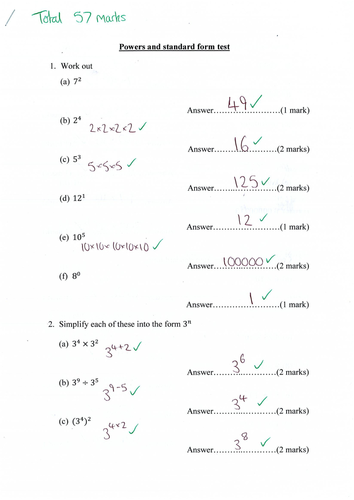 Total 57 marks
Powers and standard form test
1. Work out
(a) 7²
Answer....49✓....(1 mark)
(b) 2⁴
2×2×2×2 ✓
Answer....16✓....(2 marks)
(c) 5³
5×5×5 ✓
Answer....125✓....(2 marks)
(d) 12¹
Answer....12 ✓....(1 mark)
(e) 10⁵
10×10×10×10×10 ✓
Answer....100000✓....(2 marks)
(f) 8⁰
Answer....1 ✓....(1 mark)
2. Simplify each of these into the form 3ⁿ
(a) 3⁴ × 3²
3⁴⁺² ✓
Answer....3⁶ ✓....(2 marks)
(b) 3⁹ ÷ 3⁵
3⁹⁻⁵ ✓
Answer....3⁴ ✓....(2 marks)
(c) (3⁴)²
3⁴ˣ² ✓
Answer....3⁸ ✓....(2 marks)